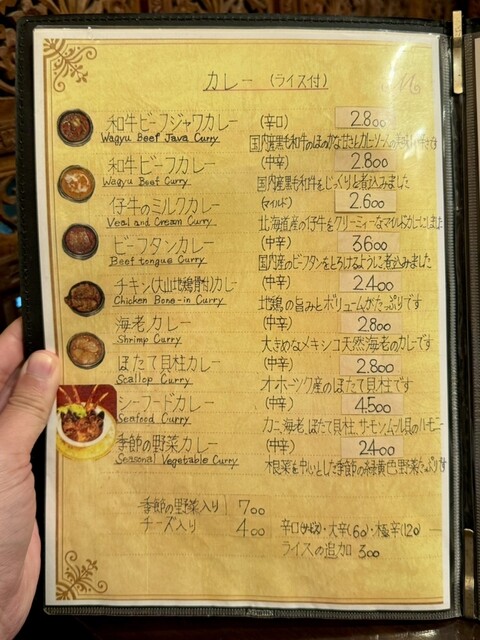 カレー (ライス付)
和牛ビーフジャワカレー (辛口) 2.800
Wagyu Beef Java Curry
和牛ビーフカレー (中辛) 2.800
Wagyu Beef Curry 国内産黒毛和牛をじっくり煮込みました
仔牛のミルクカレー (マイルド) 2.600
Veal and Cream Curry 北海道産の仔牛をクリーミィーなマイルドカレーにしました
ビーフタンカレー (中辛) 3600
Beef tongue Curry 国内産のビーフタンをとろけるように煮込みました
チキン(大山地鶏骨付)カレー (中辛) 2.400
Chicken Bone-in Curry 地鶏の旨みとボリュームがたっぷりです
海老カレー (中辛) 2.800
Shrimp Curry 大きめなメキシコ天然海老のカレーです
ほたて貝柱カレー (中辛) 2.800
Scallop Curry オホーツク産のほたて貝柱です
シーフードカレー (中辛) 4.500
Seafood Curry カニ、海老、ほたて貝柱、サーモン、ムール貝のハーモニー
季節の野菜カレー (中辛) 2400
Seasonal Vegetable Curry 根菜を中心とした季節の緑黄色野菜たっぷりです
季節の野菜入り 700
チーズ入り 400 辛口・大辛(60)・極辛(120)
ライスの追加 300